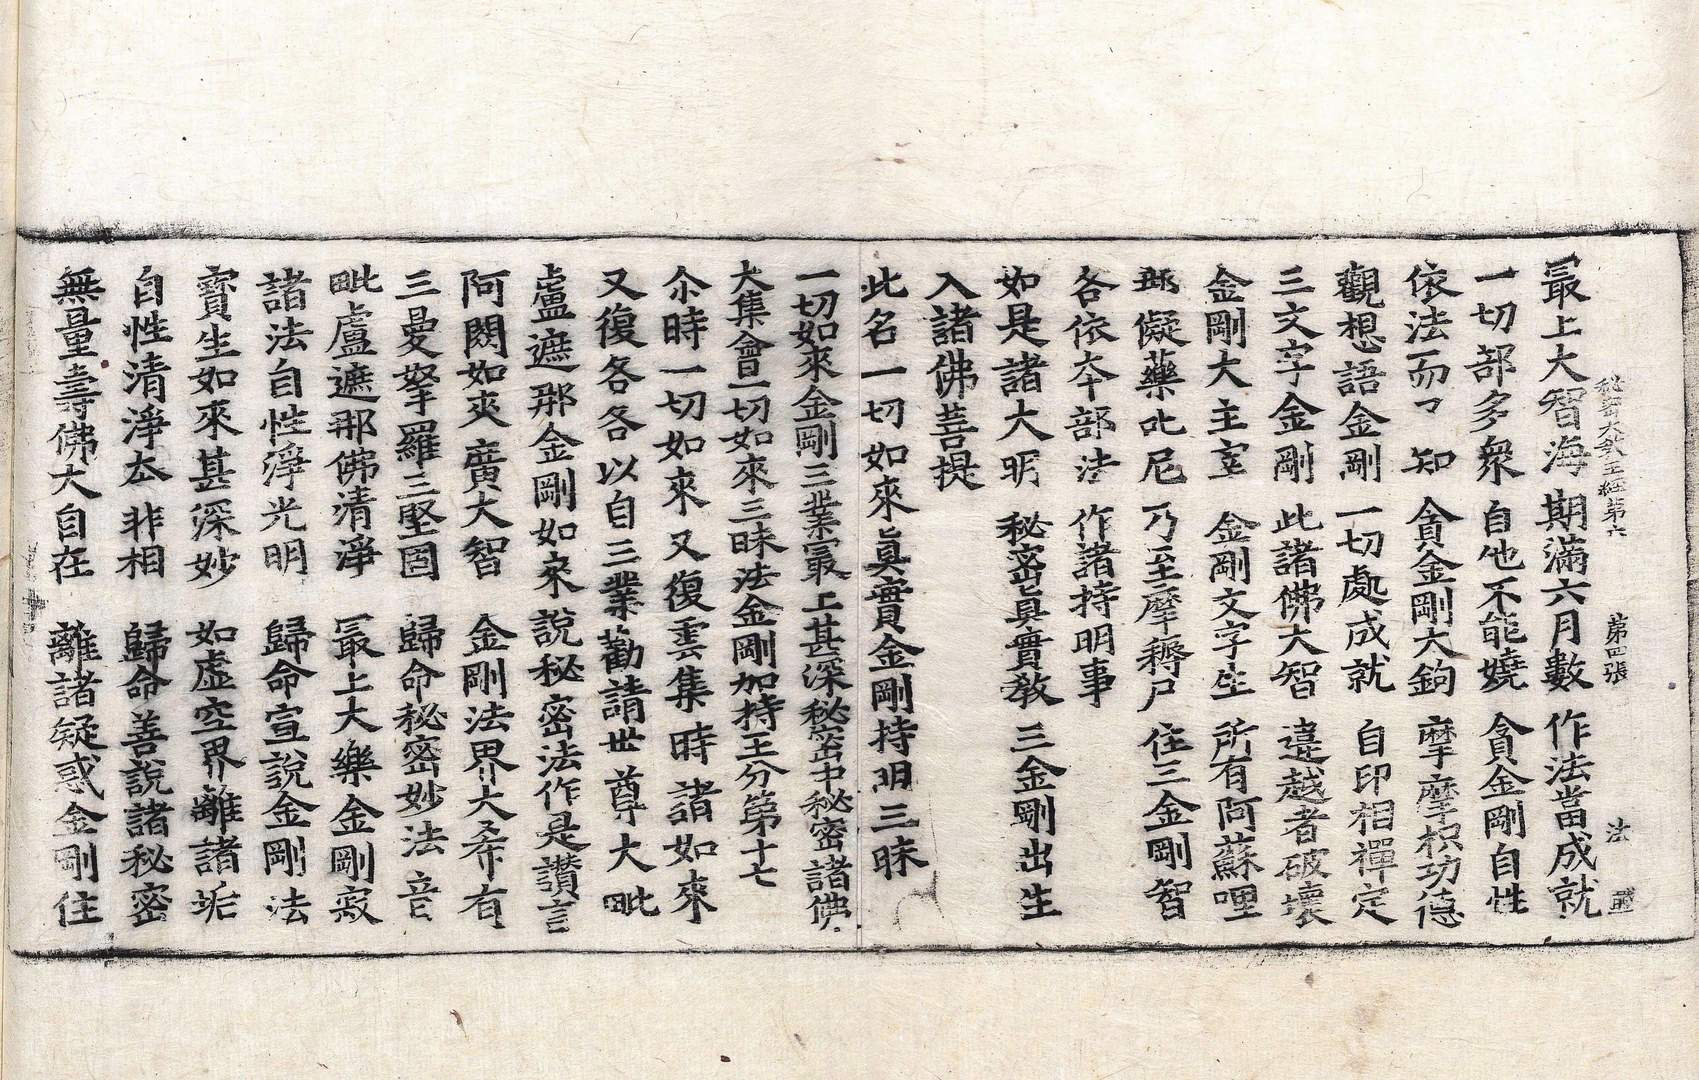 秘密大教王經第六　第四張　法
最上大智海　期滿六月數　作法當成就
一切部多衆　自他不能嬈　貪金剛自性
依法而了知　貪金剛大鉤　摩摩枳功德
觀想語金剛　一切處成就　自印相禪定
三文字金剛　此諸佛大智　違越者破壞
金剛大主宰　金剛文字生　所有阿蘇哩
那儗藥叱尼　乃至摩耨尸　住三金剛智
各依夲部法　作諸持明事
如是諸大明　秘密眞實教　三金剛出生
入諸佛菩提
此名一切如來眞實金剛持明三昧
一切如來金剛三業最上甚深秘密中秘密諸佛
大集會一切如來三昧法金剛加持王分第十七
尒時一切如來又復雲集時諸如來
又復各各以自三業勸請世尊大毗
盧遮那金剛如來說秘密法作是讚言
阿閦如來廣大智　金剛法界大希有
三曼拏羅三堅固　歸命秘密妙法音
毗盧遮那佛清淨　最上大樂金剛寂
諸法自性淨光明　歸命宣說金剛法
寶生如來甚深妙　如虛空界離諸垢
自性清淨夲非相　歸命善說諸秘密
無量壽佛大自在　離諸疑惑金剛住